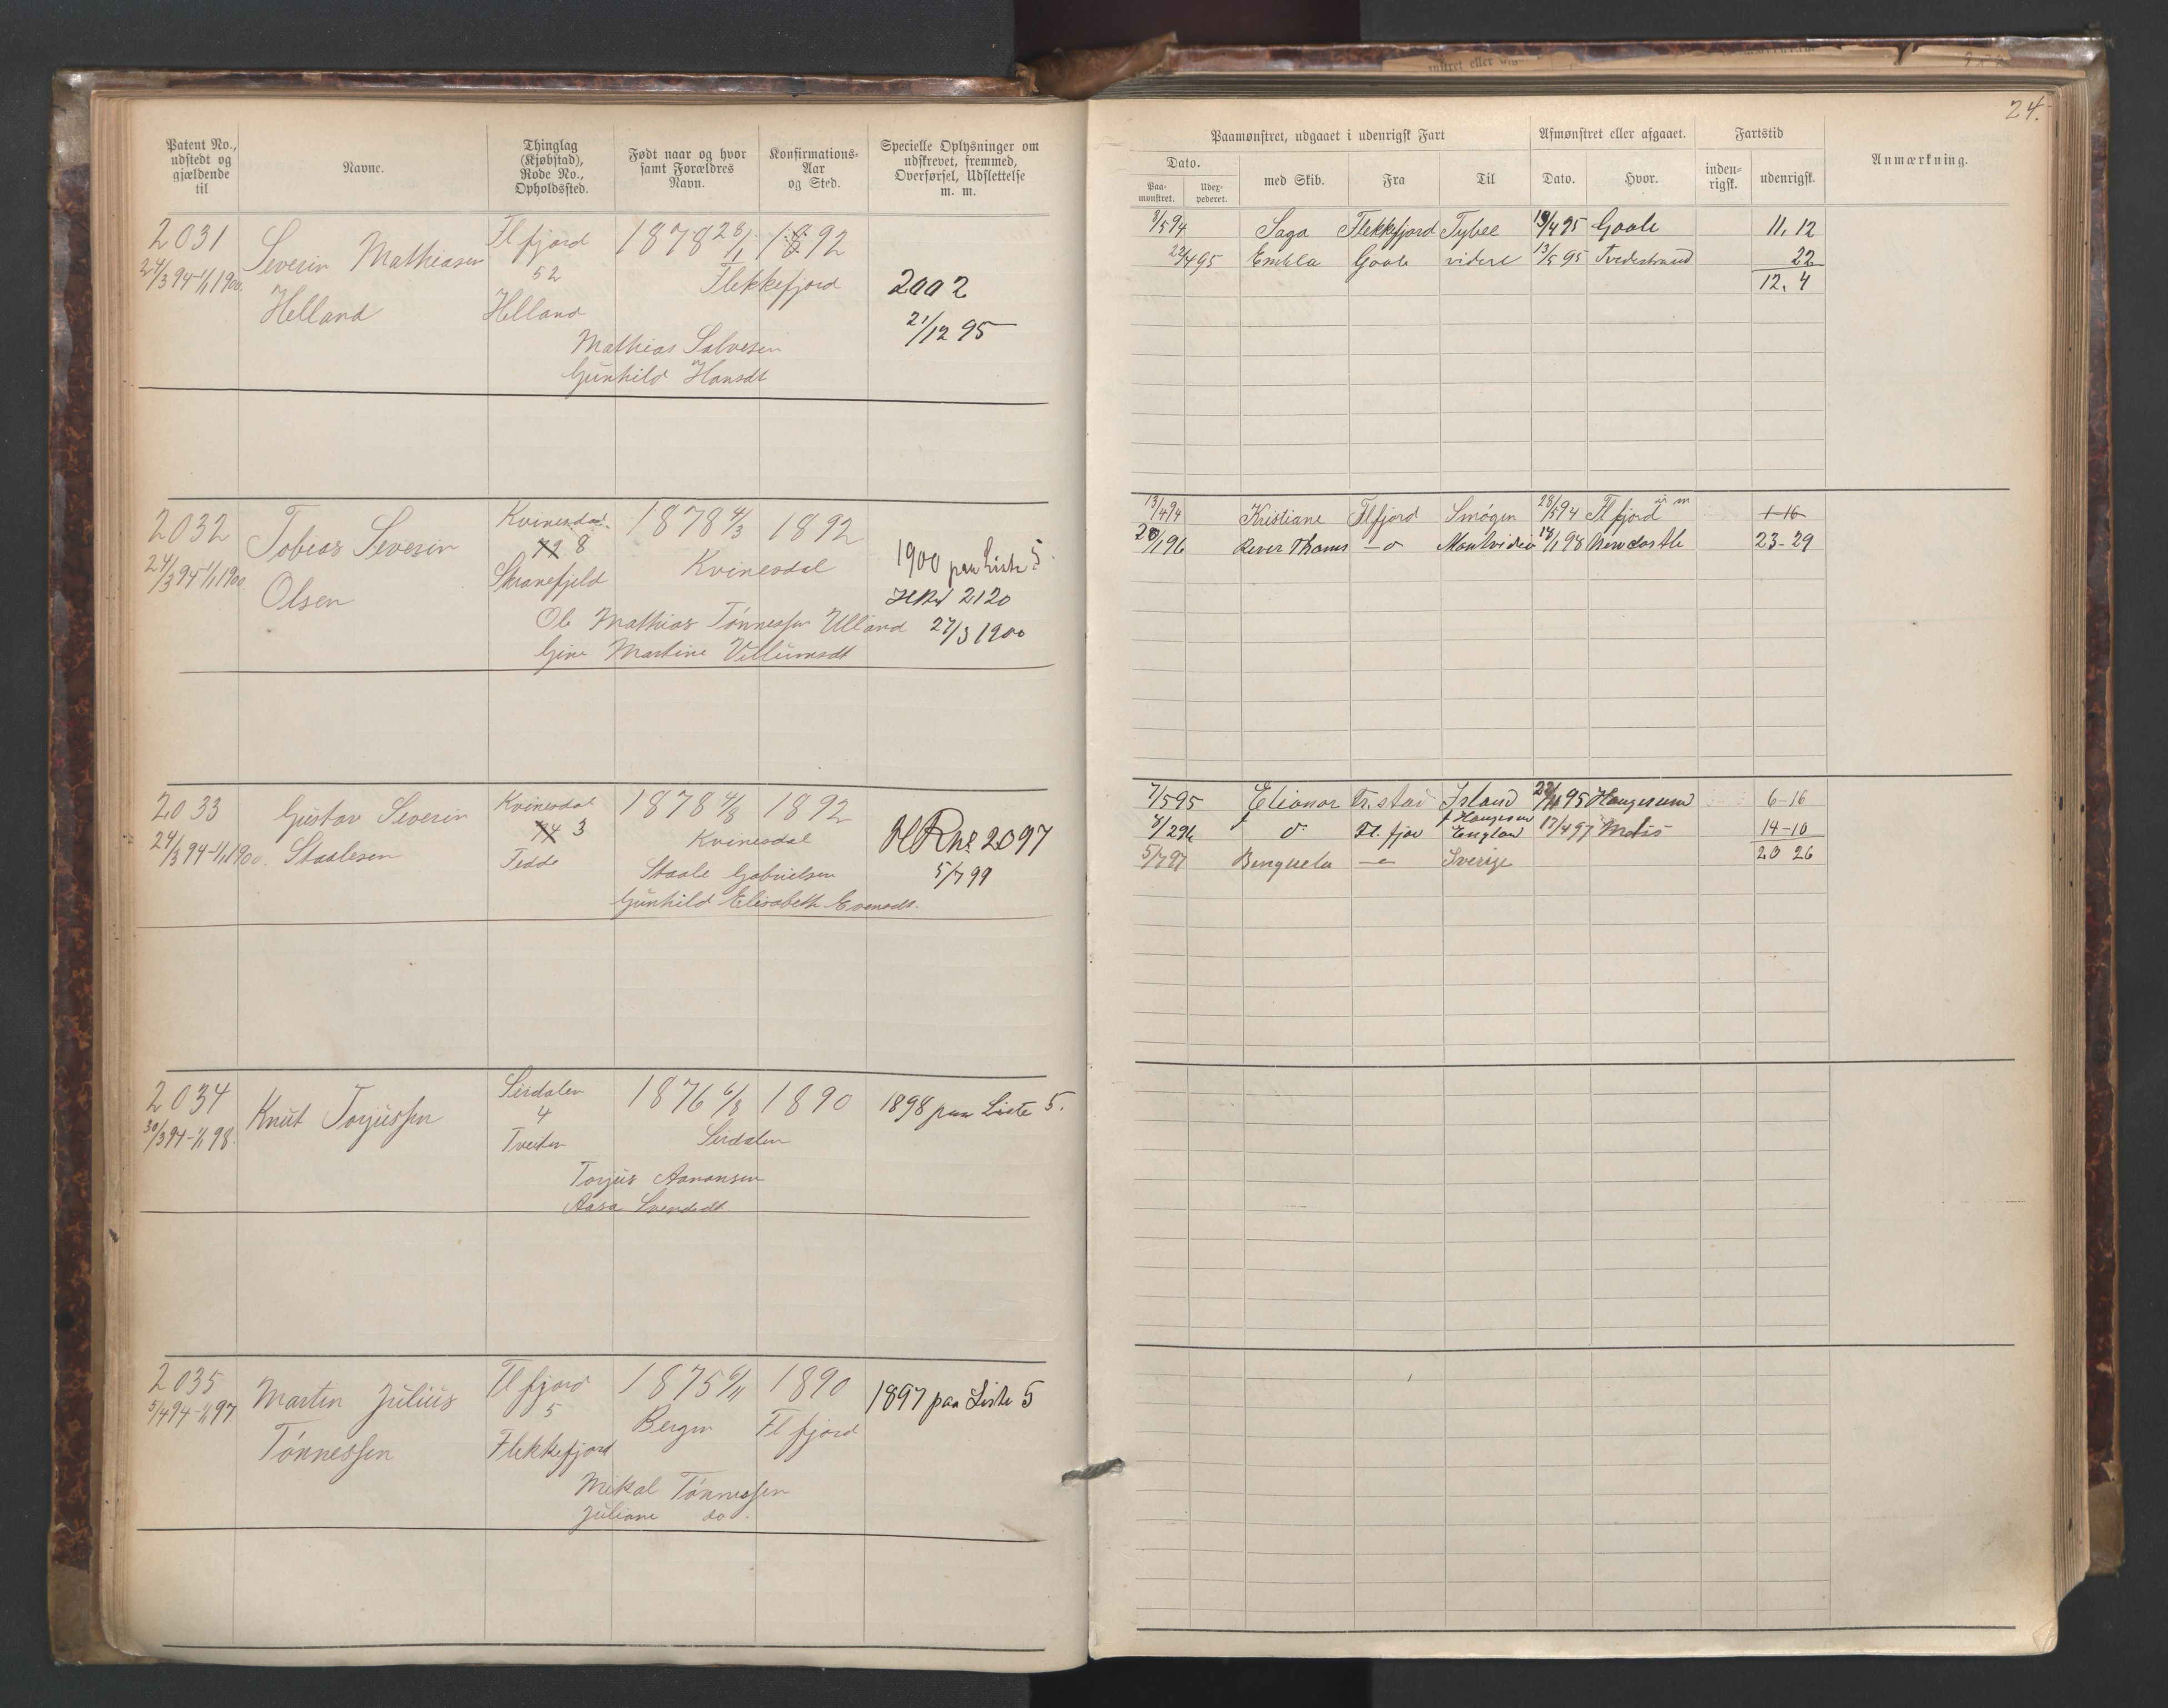 24.
Patent No., udstedt og gjældende til
Navne.
Thinglag (Kjøbstad), Rode No., Opholdssted.
Født naar og hvor samt Forældres Navn.
Konfirmations-Aar og Sted.
Specielle Oplysninger om udskrevet, fremmed, Overførsel, Udslettelse m. m.
Paamønstret, udgaaet i udenrigsk Fart
Afmønstret eller afgaaet.
Fartstid
Anmærkning.
Dato.
Paa-mønstret.
med Skib.
Fra
Til
Dato.
Hvor.
inden-rigsk.
udenrigsk.
2031 Severin Mathiasen Fl fjord 1878 28/1 1892
24/3 94 - 1/1 1900. Helland 52 Flekkefjord 2002
Helland 21/12 95
Mathias Salvesen
Gunhild Hansdt
8/5 94 Saga Flekkefjord Tybee 19/4 95 Goole 11, 12
22/4 95 Embla Goole videre 13/5 95 Tvedestrand 22
12. 4
2032 Tobias Severin Kvinesdal 1878 4/3 1892
24/3 94 - 1/1 1900 Olsen 8 Kvinesdal 1900 paa Liste 5
2120
Ole Mathias Tønnessen Ulland 27/3 1900
Gine Martine Villumsdt
13/4 94 Kristiane Flfjord Smögen 28/5 94 Fl fjord 1-16
20/1 96 River Thams - o Montvideo 18/1 98 Newcastle 23-29
2033 Gustav Severin Kvinesdal 1878 4/8 1892
24/3 94 - 1/1 1900. Staalesen 3 Kvinesdal 2097
Fedde Staale Gabrielsen 5/7 99
Gunhild Elisabeth Evensdt.
7/5 95 Elionor Fr.stad Island 95 Haugesund 6-16
8/2 96 do Fl. fjor England 17/4 97 14-10
5/7 97 Benguela - o - Sverige 20 26
2034 Knut Torjussen Sirdalen 1876 6/8 1890 1898 paa Liste 5.
30/3 94 - 1/1 98. 4
Tveiten Sirdalen
Torjus Aanonsen
Aasa Svendsdt.
2035 Martin Julius Fl fjord 1875 6/11 1890 1897 paa Liste 5
5/4 94 - 1/1 97 Tønnessen 5 Bergen Fl fjord
Flekkefjord
Mikal Tønnessen
Juliane do.